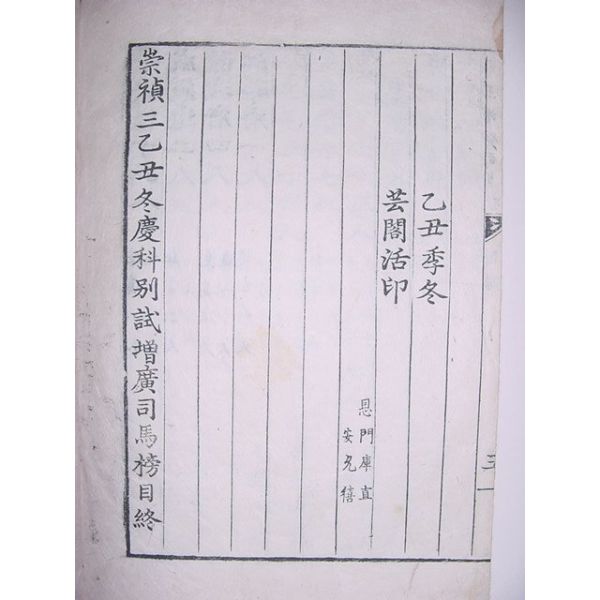 乙丑季冬
芸閣活印
恩門庫直
安允禧
崇禎三乙丑冬慶科別試增廣司馬榜目終
三一